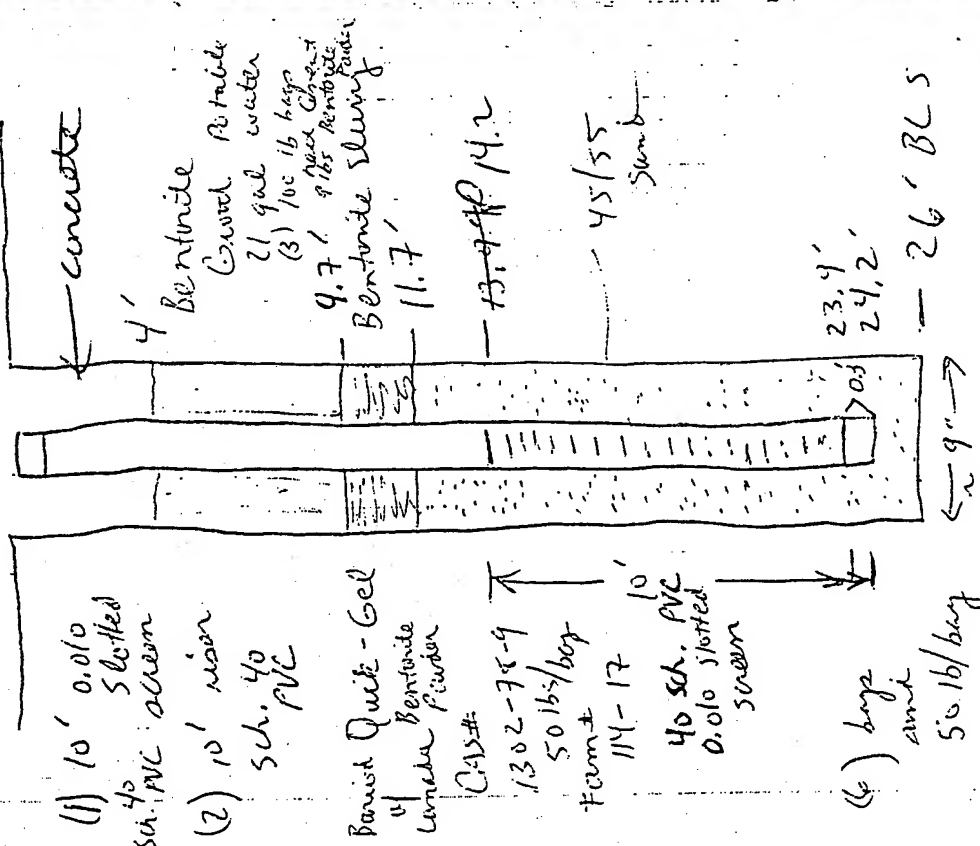 (1) 10' 0.010
slotted
Sch. 40
PVC screen
(2) 10' riser
Sch. 40
PVC
Baroid Quik-Gel
w/
Bentonite
Powder
CAS#:
1302-78-9
50 lbs/bag
114-17
10'
40 sch. PVC
0.010 slotted
screen
(6) bags
sand
50 lb/bag
concrete
4'
Bentonite
Grout Potable
21 gal water
(3) 100 lb bags
9 lbs Bentonite
Powder
9.7'
Bentonite Slurry
11.7'
14.2
45/55
Sand
23.9'
24.2'
0.3'
26' BLS
~ 9"